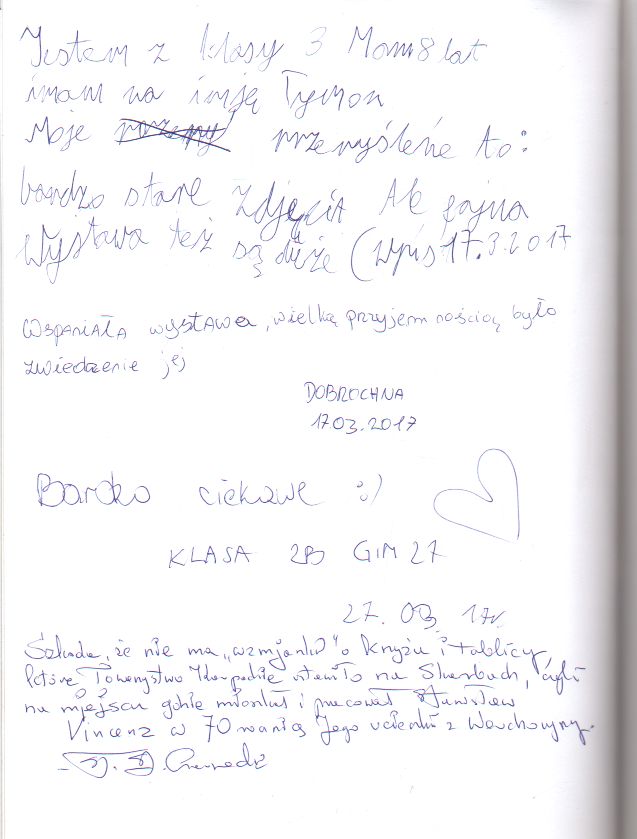 Jestem z klasy 3 Mam 8 lat
imam na imję Tymon
Moje przemyśleńe to:
bardzo stare zdjęcia Ale fajna
Wystawa też są duże (wpis 17.3.2017
Wspaniała wystawa, wielką przyjemnością było
zwiedzenie jej
DOBROCHNA
17.03.2017
Bardzo ciekawe :)
KLASA 2B GIM 27
27. 03. 17r.
Szkoda, że nie ma „wzmianki” o Krzyżu i tablicy,
które Towarzystwo na Skarbach, czyli
na miejscu gdzie mieszkał i pracował Stanisław
Vincenz w 70 Jego ucieczki z